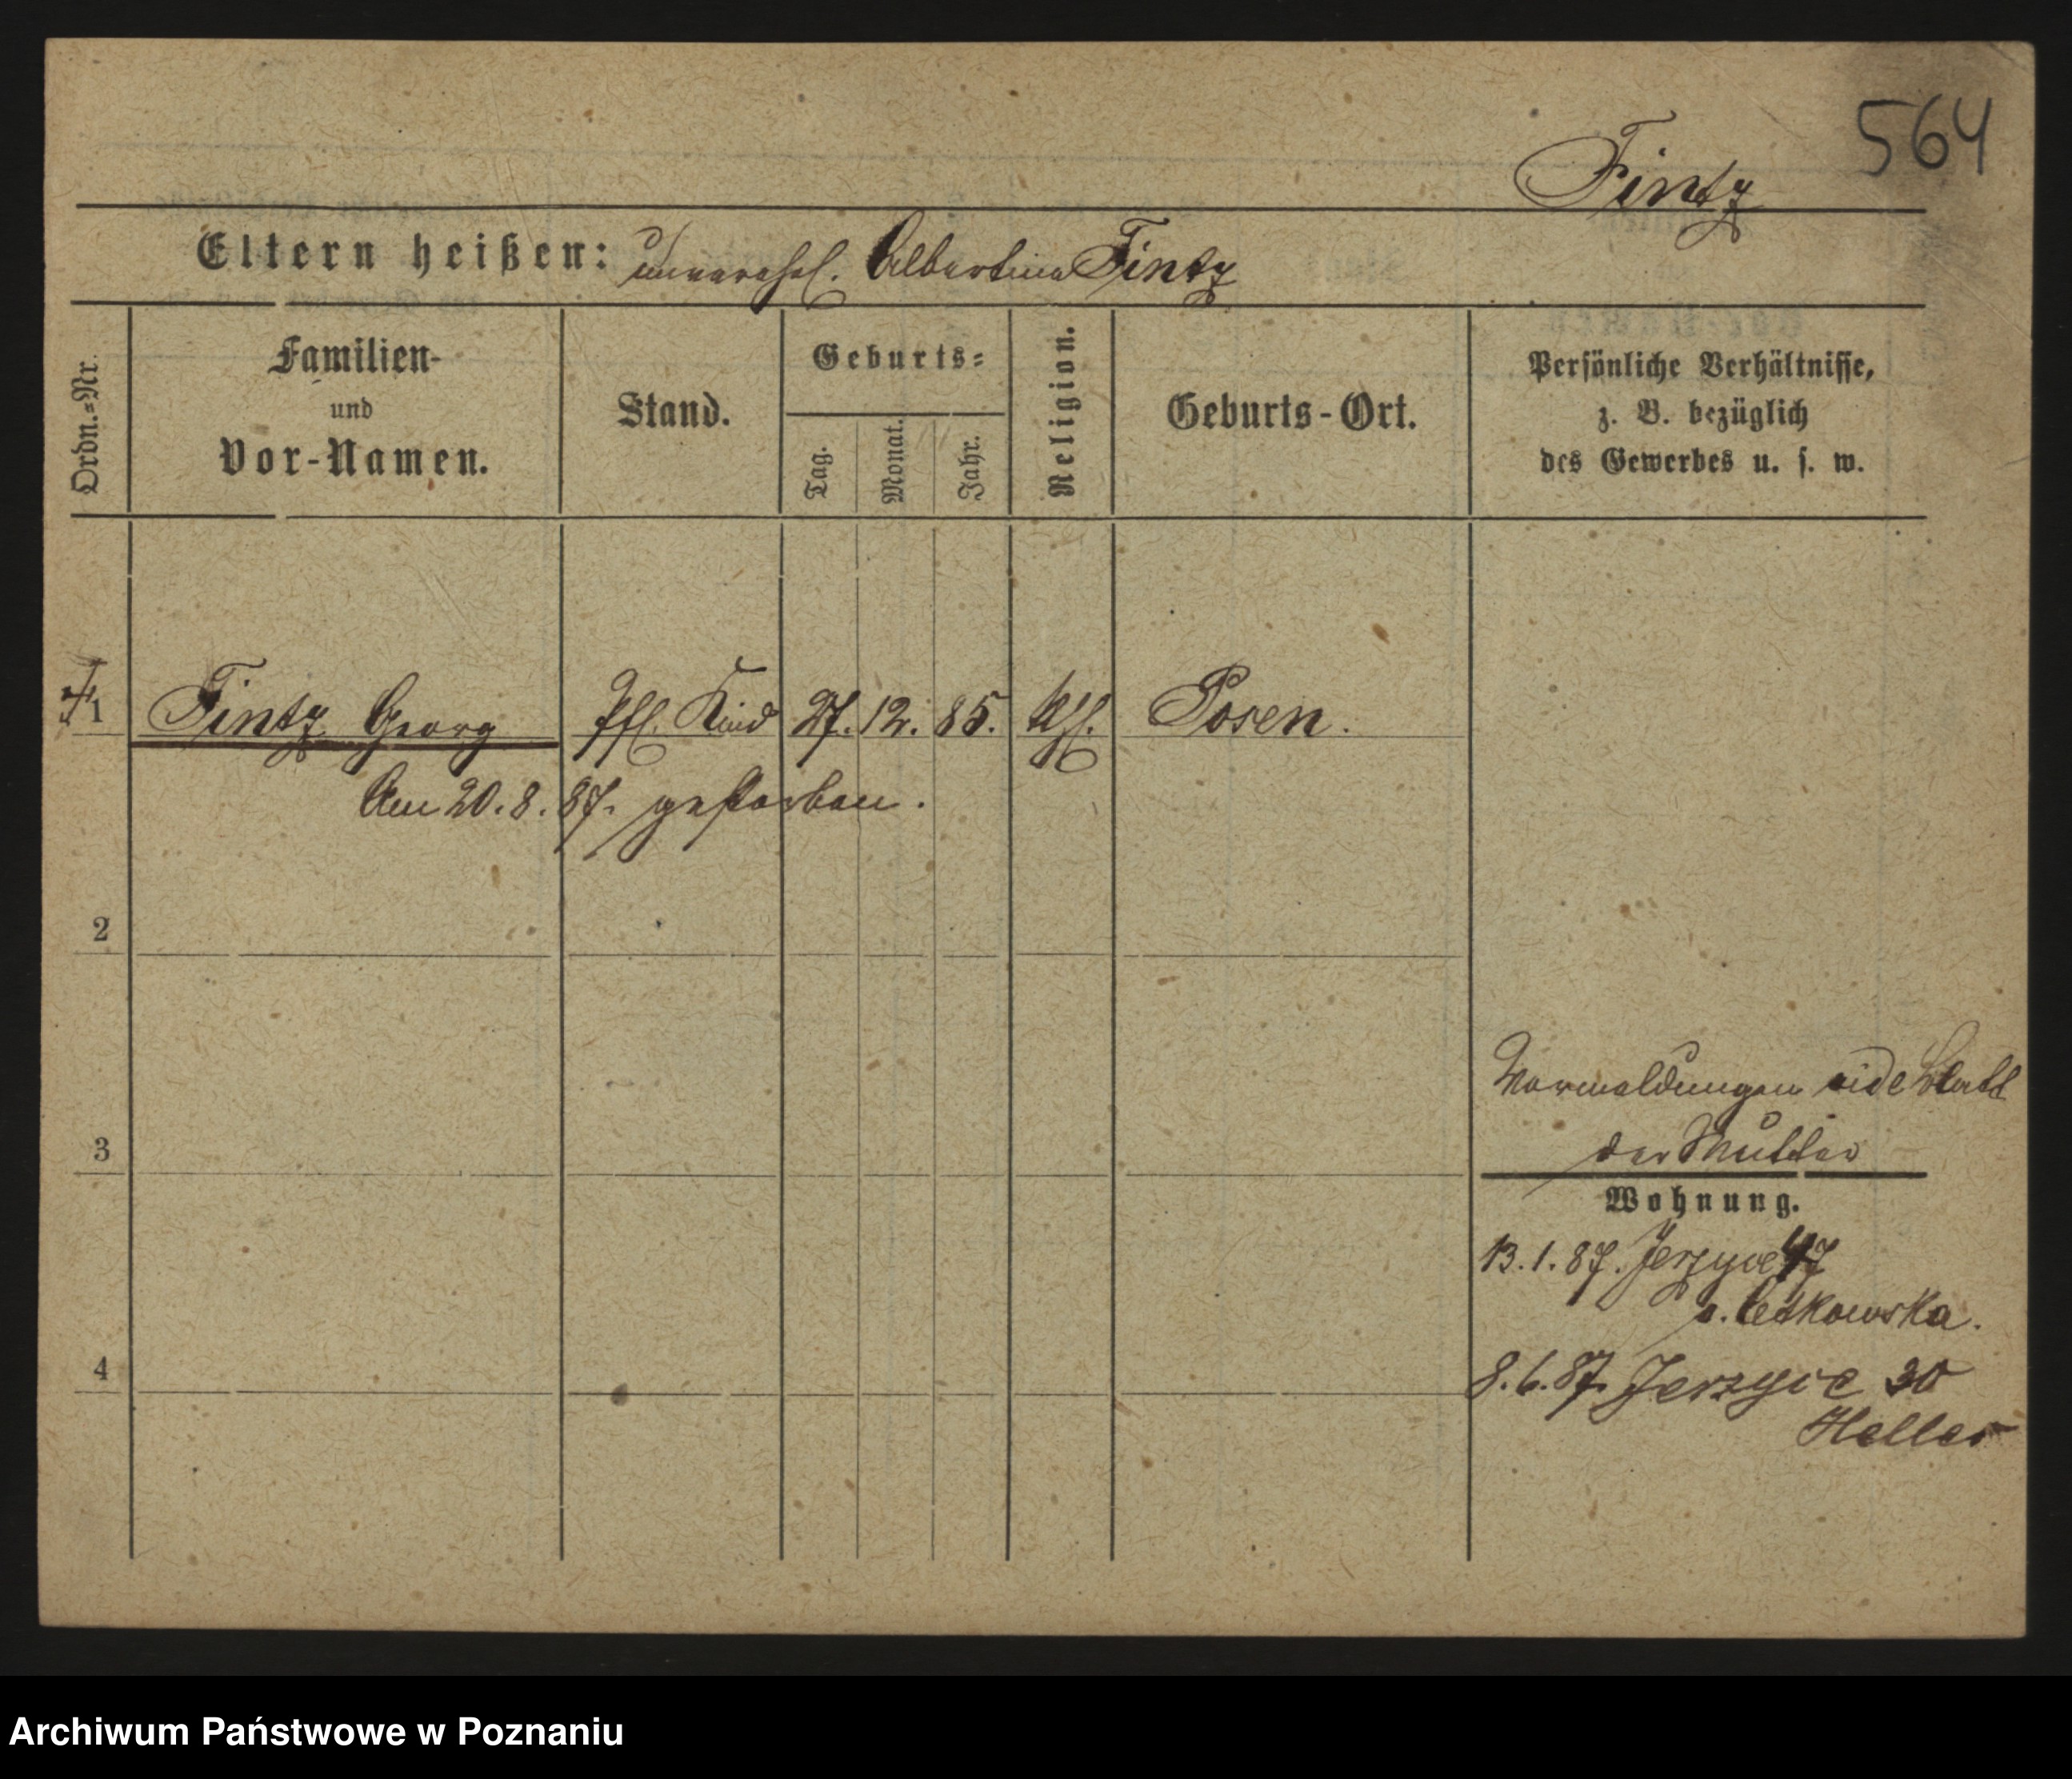 564
Fintz
Eltern heißen: unverehel. Albertine Fintz
Ordn.=Nr.
Familien-
und
Vor-Namen.
Stand.
Geburts=
Tag.
Monat.
Jahr.
Religion.
Geburts-Ort.
Persönliche Verhältnisse,
z. B. bezüglich
des Gewerbes u. s. w.
1 Fintz Georg Pfl. Kind 27. 12. 85. Posen.
Am 20. 8. 87. gestorben.
2
3
4
Vormeldungen vide Blatt
der Mutter
Wohnung.
13. 1. 87. Jerzyce 47
8. 6. 87. Jerzyce 30
Heller
Archiwum Państwowe w Poznaniu